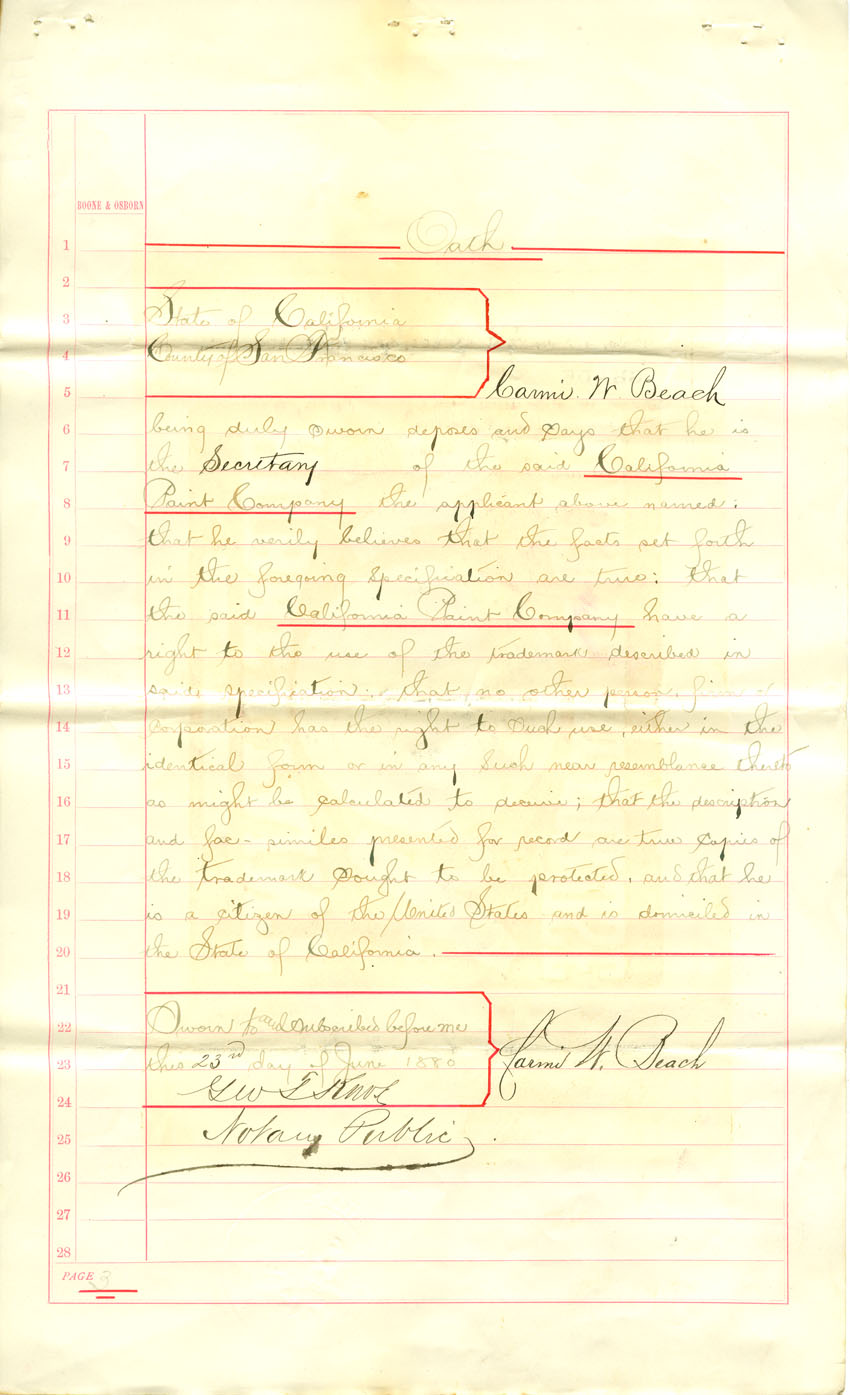 BOONE & OSBORN
1 Oath
2
3 State of California
4 County of San Francisco
5 Carmi. W. Beach
6 being duly sworn deposes and says that he is
7 the Secretary of the said California
8 Paint Company the applicant above named:
9 that he verily believes that the facts set forth
10 in the foregoing specification are true: that
11 the said California Paint Company have a
12 right to the use of the trademark described in
13 said specification; that no other person, firm or
14 corporation has the right to such use, either in the
15 identical form or in any such near resemblance thereto
16 as might be calculated to deceive; that the description
17 and fac-similes presented for record are true copies of
18 the trademark sought to be protected, and that he
19 is a citizen of the United States and is domiciled in
20 the State of California.
21
22 Sworn to and subscribed before me
23 this 23rd day of June 1880 Carmi W. Beach
24 Geo T Knox
25 Notary Public.
26
27
28
PAGE 3